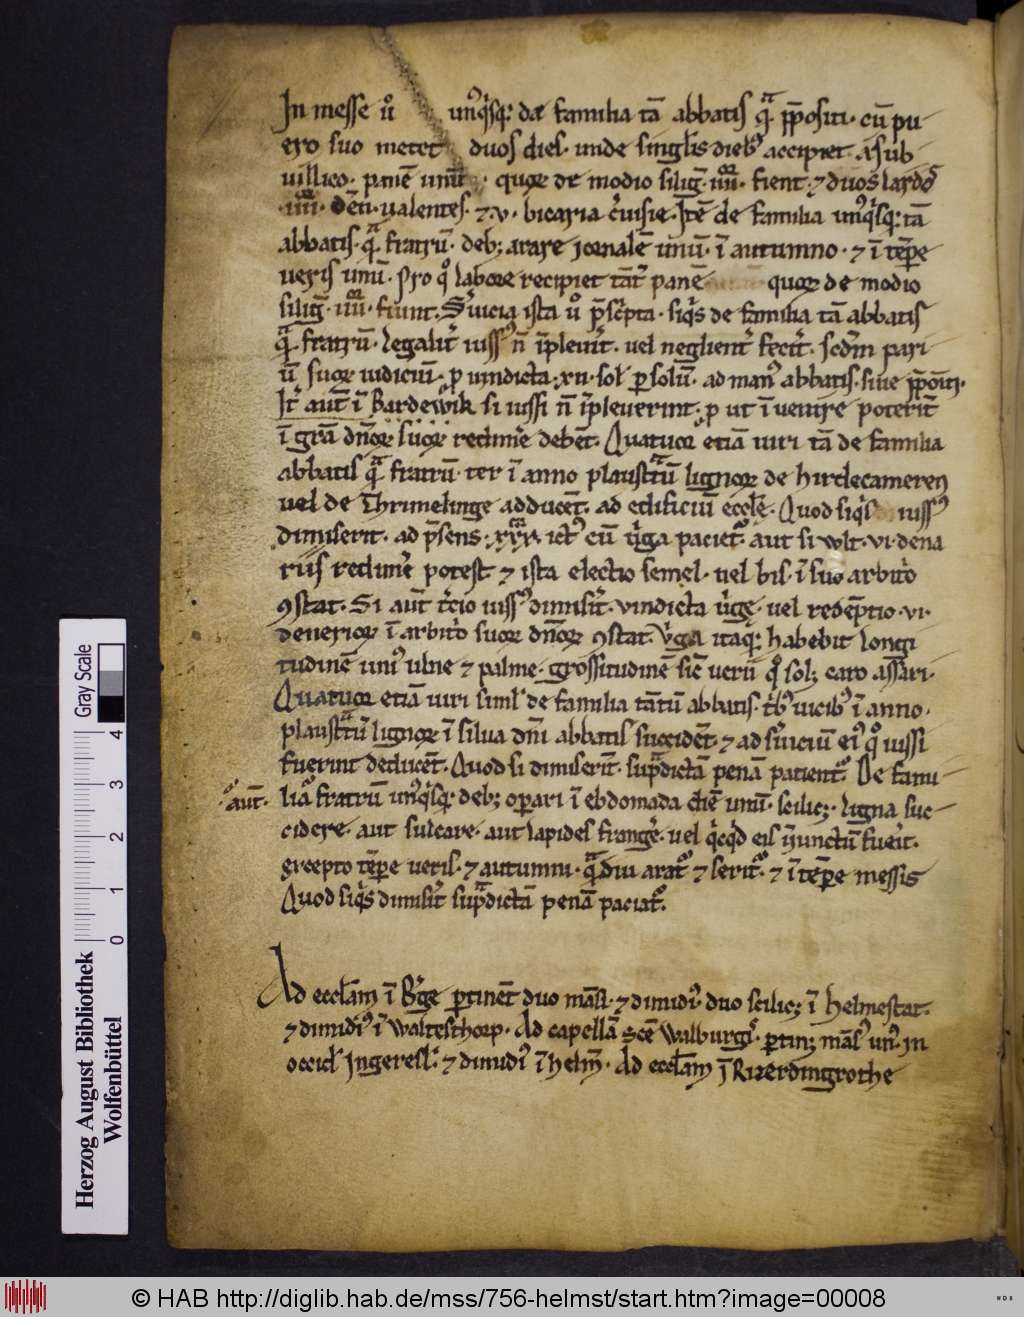 In messe ů unꝰqͥsqꝫ de familia tā abbatis qᵃ p̄positi · cū pu
ero suo metet duos dies · unde singl̓is diebꝰ accipiet a sub
uillico · panē unū · quoꝝ de modio siliḡ · iiii · fient · ⁊ duos lardos
· iiii · deñ · ualentes · ⁊ v · bicaria c̓uisie · Itē de familia unꝰqͥsqꝫ tā
abbatis · qᵃ fratrū · debꝫ arare iornalē unū · ī autumno · ⁊ ī tēpe
ueris unū · Pro qͦ labore recipiet tāt̓ panē quoꝝ de modio
siliḡ · iiii · fiunt · S̓uicia ista ů p̄sc̓pta · siqͥs de familia tā abbatis
qᵃ fratrū · legalit̓ iussꝰ n̄ īpleuit̓ · uel neglient̓ fecit̓ · scd̄m pari
ū suoꝝ iudiciū · p uindicta · xii · sol̓ psolū · ad manꝰ abbatis · siue p̄poiti ·
It̓ aut̄ ī Bardewik si iussi n̄ īpleuerint · p ut īuenire poterīt
ī gr̄a dn̄oꝝ suoꝝ redim̓e debēt · Quatuor etiā uiri tā de familia
abbatis qᵃ fratrū · ter ī anno plaustᵃtū lignoꝝ de hirdecameren
uel de Thrimelinge adducēt · ad edificiū eccl̓e · Quod siqͥs iussꝰ
dimiserit · ad p̄sens · xxx · ictꝰ cū ůga pacietᷣ · aut si wlt · vi · dena
riis redim̓e potest ⁊ ista electio semel · uel bis · ī suo arbit̓o
ꝯstat · Si aut̄ t̓cio iussꝰ dimisit̓ · uindicta ůge · uel redēptio · vi ·
denerioꝝ ī arbit̓o suoꝝ dn̄oꝝ ꝯstat · V̓ga itaqꝫ habebit longi
tudinē uniꝰ ulne ⁊ palme · grossitudinē sic̄ ueru qͦ solꝫ caro assari ·
Quatuor etiā uiri siml̓ de familia tātū abbatis · t̓bꝰ uicibꝰ ī anno ·
plaustᵃtū lignoꝝ ī silua dn̄i abbatis succidēt ⁊ ad s̓uiciū eiꝰ qͦ iussi
fuerint deducēt · Quod si dimiserīt · sup̄dictā penā patientᷣ · De fami
· aut̄ · liā fratrū unꝰqͥsqꝫ debꝫ opari ī ebdomada diē unū · scilicꝫ · ligna suc
cidere · aut sulcare · aut lapides frang̓e · uel qͥcqͥd eis iniunctū fueit̓ ·
excepto tēpe ueris · ⁊ autumni · qᵃdiu aratᷣ ⁊ seritᷣ · ⁊ ī tēpe messis
Quod siqͥs dimisit̓ sup̄dictā penā paciatᷣ ·
Ad eccl̄am ī B̓ge ptinēt duo māsi · ⁊ dimidiꝰ · duo scilicꝫ ī helmestat ·
⁊ dimidiꝰ ī waltesthorp · Ad capellā sc̄e walburgis · ptinꝫ māsꝰ unꝰ · in
occid̓ Ingeresl̓ · ⁊ dimidiꝰ ī helm̄ · Ad eccl̄am ī Ruerdingrothe
Herzog August Bibliothek
Wolfenbüttel
0 1 2 3 4
Gray Scale
© HAB http://diglib.hab.de/mss/756-helmst/start.htm?image=00008